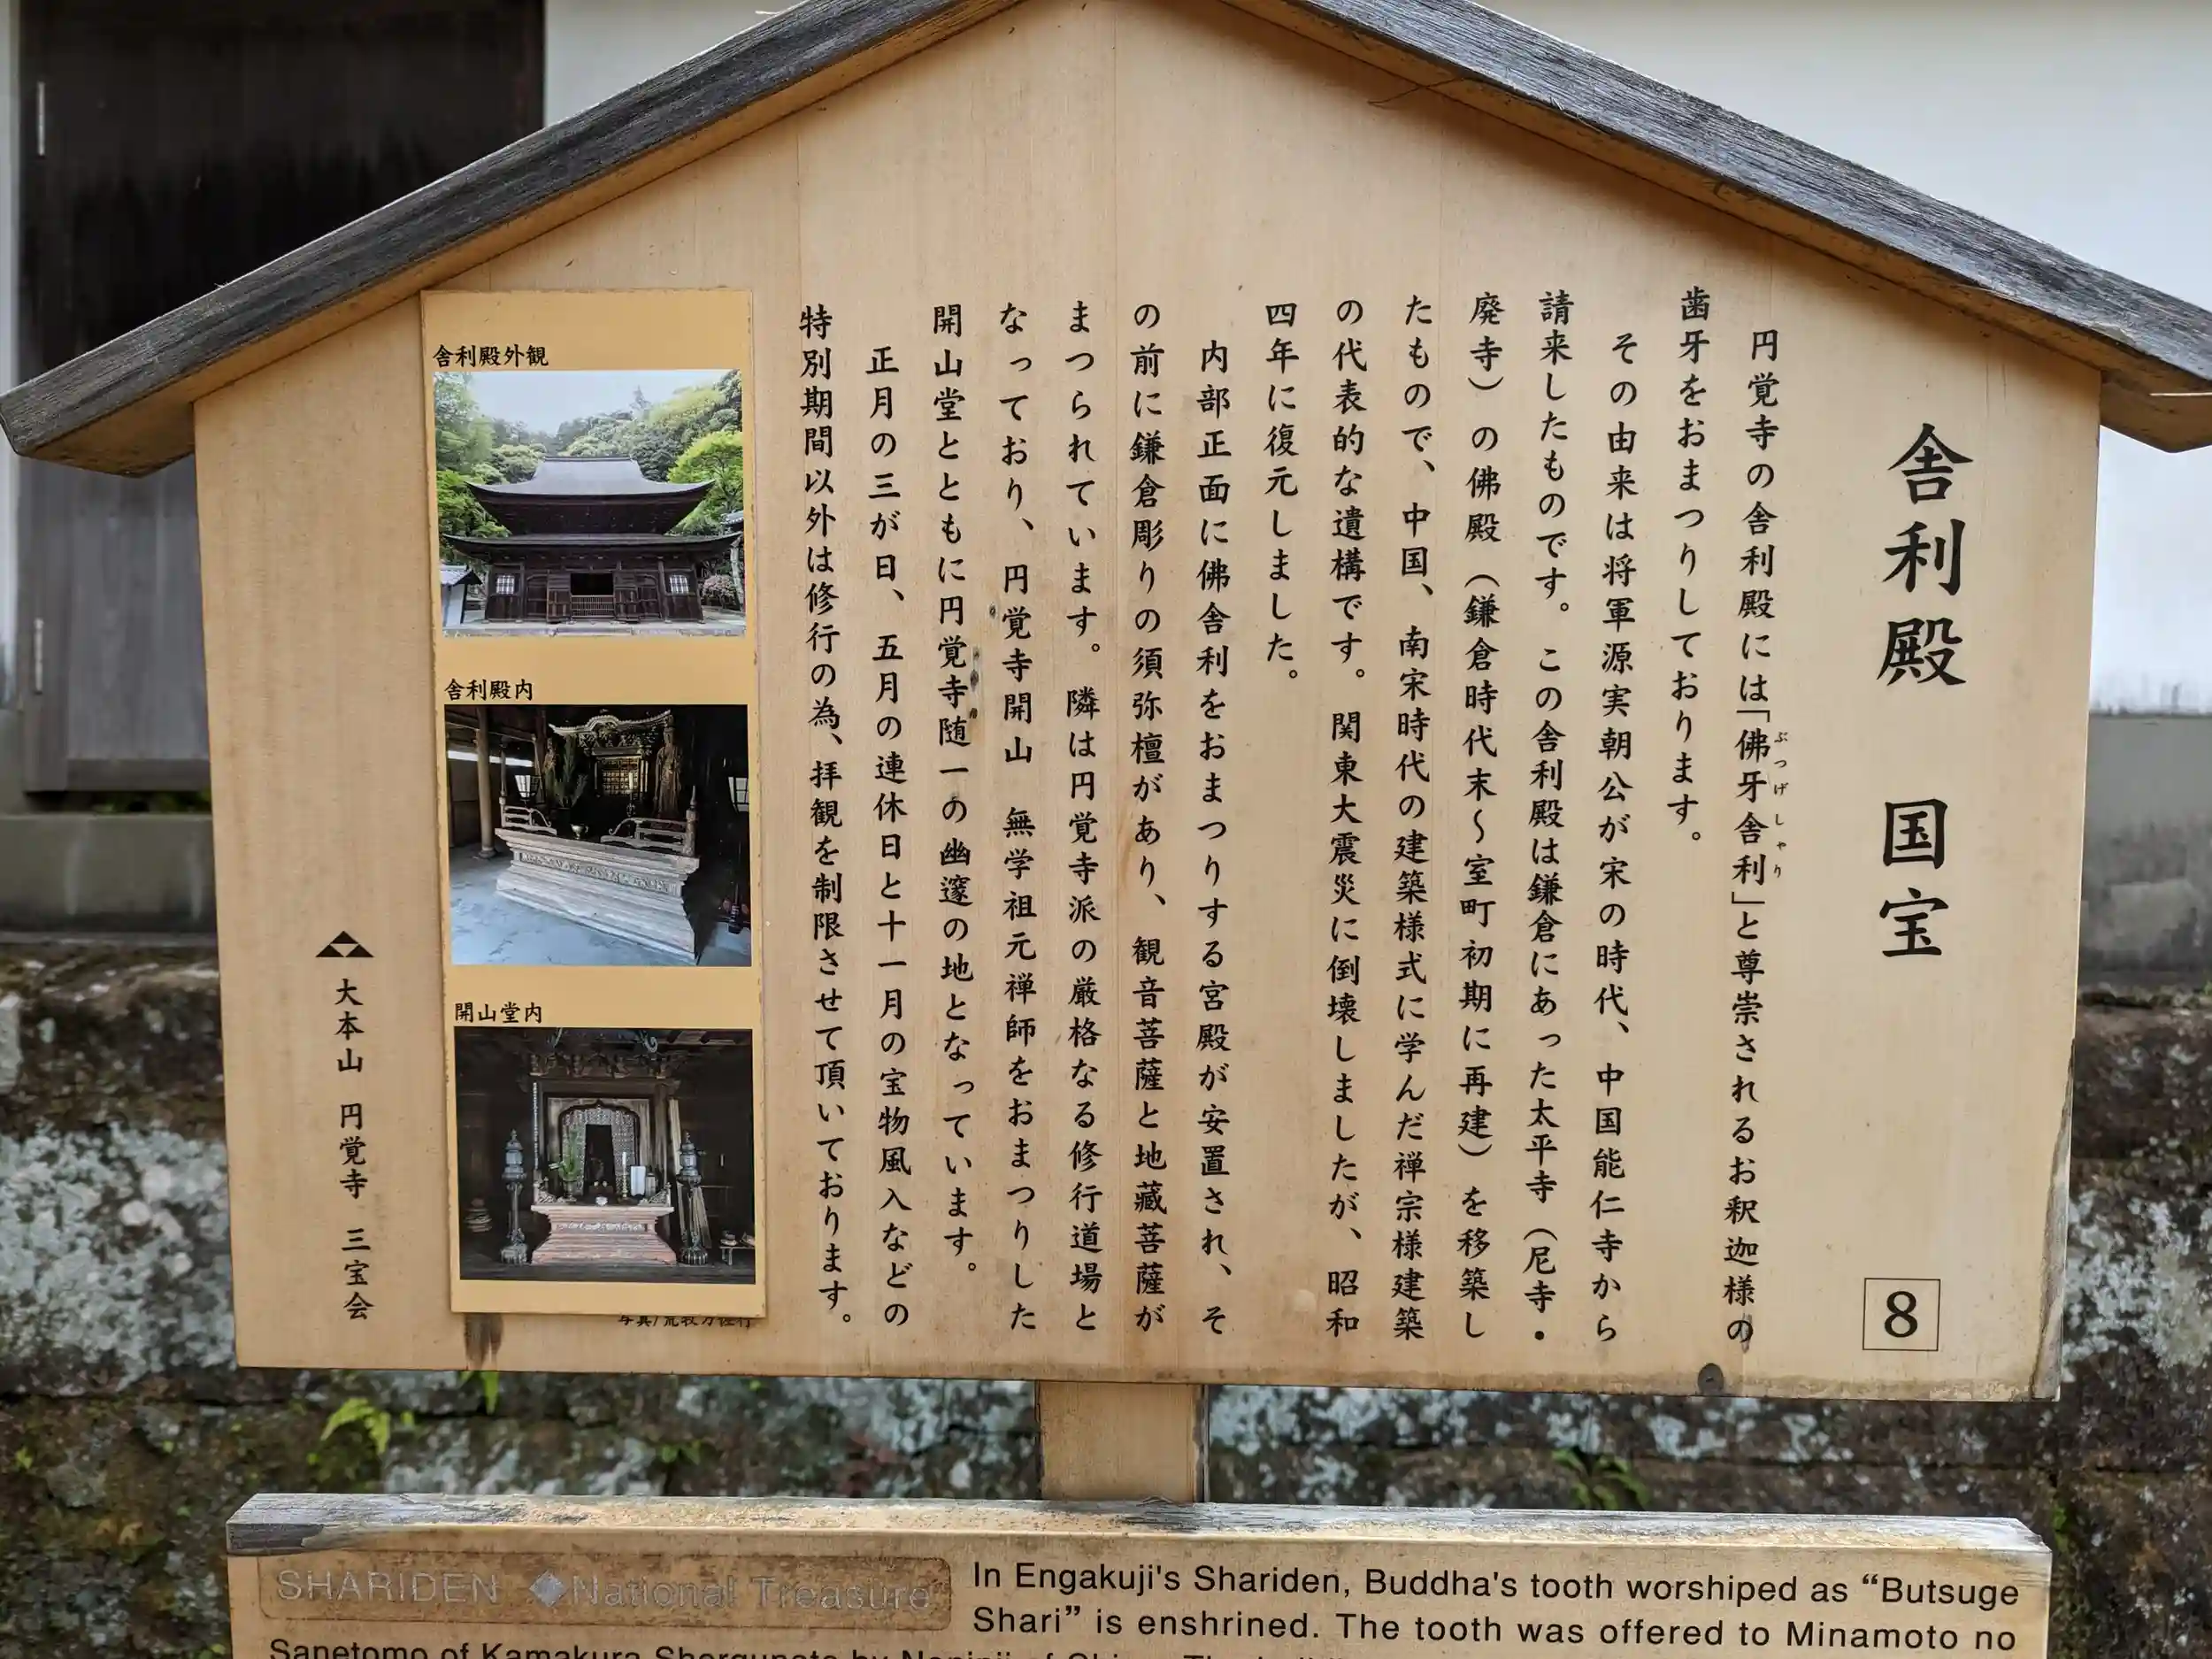 舎利殿　国宝
8
円覚寺の舎利殿には「佛牙舎利」と尊崇されるお釈迦様の
ぶつげしゃり
歯牙をおまつりしております。
その由来は将軍源実朝公が宋の時代、中国能仁寺から
請来したものです。この舎利殿は鎌倉にあった太平寺（尼寺・
廃寺）の佛殿（鎌倉時代末〜室町初期に再建）を移築し
たもので、中国、南宋時代の建築様式に学んだ禅宗様建築
の代表的な遺構です。関東大震災に倒壊しましたが、昭和
四年に復元しました。
内部正面に佛舎利をおまつりする宮殿が安置され、そ
の前に鎌倉彫りの須弥檀があり、観音菩薩と地藏菩薩が
まつられています。隣は円覚寺派の厳格なる修行道場と
なっており、円覚寺開山　無学祖元禅師をおまつりした
開山堂とともに円覚寺随一の幽邃の地となっています。
正月の三が日、五月の連休日と十一月の宝物風入などの
特別期間以外は修行の為、拝観を制限させて頂いております。
舎利殿外観
舎利殿内
開山堂内
大本山　円覚寺　三宝会
SHARIDEN ◆National Treasure
In Engakuji's Shariden, Buddha's tooth worshiped as “Butsuge
Shari” is enshrined. The tooth was offered to Minamoto no
Sanetomo of Kamakura